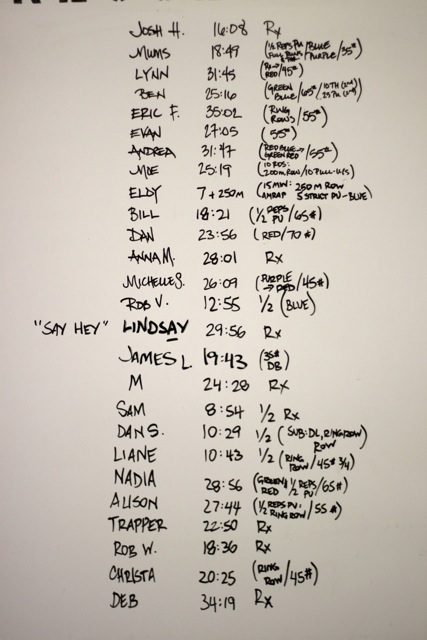 JOSH H. 16:08 Rx
MUMS 18:49 (1/2 REPS PU/BLUE PURPLE/35#)
LYNN 31:45 (RED/45#)
BEN 25:16 (GREEN BLUE/65#/10TH
ERIC F. 35:02 (RING ROWS/55#)
EVAN 27:05 (55#)
ANDREA 31:47 (RED BLUE→ GREEN RED/55#)
MOE 25:19 (10 RDS: 200m ROW/10 PULL-UPS)
ELDY 7 + 250M (15 MIN: AMRAP 250 M ROW 5 STRICT PU-BLUE)
BILL 18:21 (1/2 REPS PU/65#)
DAN 23:56 (RED/70#)
ANNA M. 28:01 Rx
MICHELLE S. 26:09 (PURPLE → RED/45#)
ROB V. 12:55 1/2 (BLUE)
"SAY HEY" LINDSAY 29:56 Rx
JAMES L 19:43 (35# DB)
M 24:28 Rx
SAM 8:54 1/2 Rx
DAN S. 10:29 1/2 (SUB: DL, RING ROW) ROW
LIANE 10:43 1/2 (RING ROW/45# 3/4)
NADIA 28:56 (GREEN & RED 1/2 REPS PU/65#)
ALISON 27:44 (1/2 REPS PU: RING ROW/55#)
TRAPPER 22:50 Rx
ROB W. 18:36 Rx
CHRISTA 20:25 (RING ROW/45#)
DEB 34:19 Rx